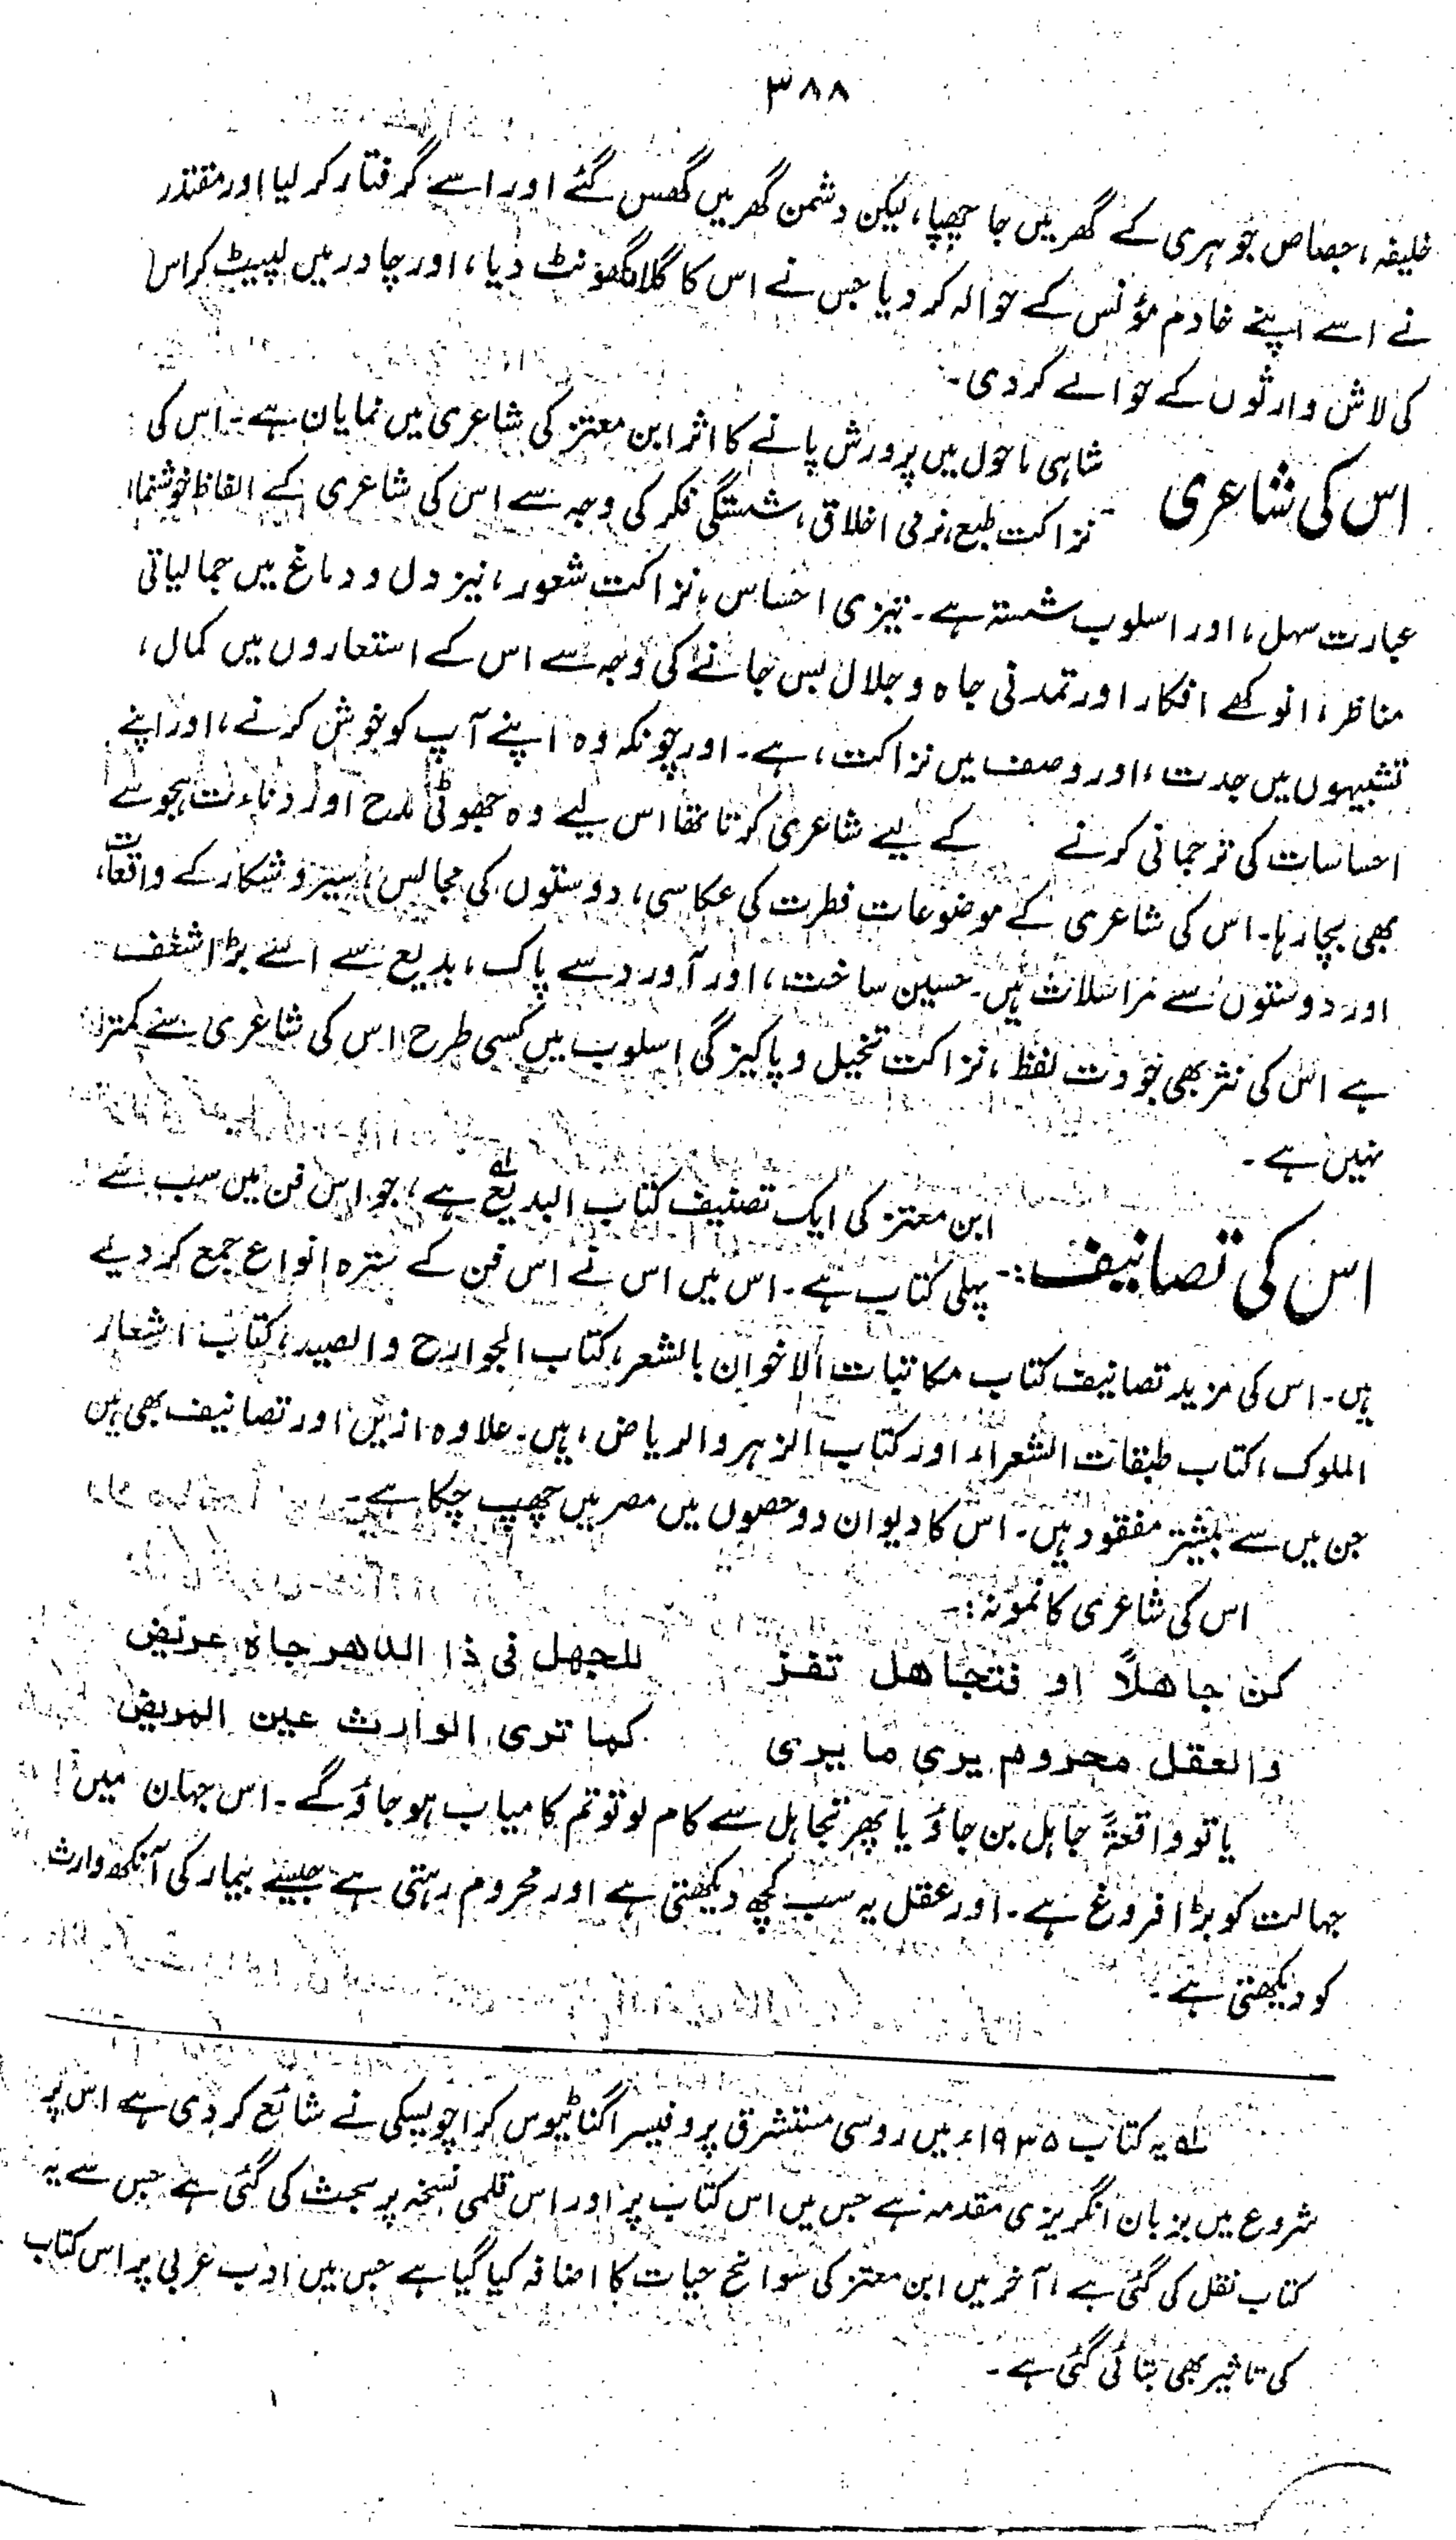 ۳۸۸
خلیفہ، جصاص جوہری کے گھر میں جا چھپا، لیکن دشمن گھر میں گھس گئے اور اسے گرفتار کر لیا اور مقتدر
نے اسے اپنے خادم مؤنس کے حوالہ کر دیا جس نے اس کا گلا گھونٹ دیا، اور چادر میں لپیٹ کر اس
کی لاش وارثوں کے حوالے کر دی۔
اس کی شاعری - شاہی ماحول میں پرورش پانے کا اثر ابن معتز کی شاعری میں نمایاں ہے۔ اس کی
نزاکت طبع، نرمی اخلاق، شستگی فکر کی وجہ سے اس کی شاعری کے الفاظ خوشنما،
عبارت سہل، اور اسلوب شستہ ہے۔ تیزی احساس، نزاکت شعور، نیز دل و دماغ میں جمالیاتی
مناظر، انوکھے افکار اور تمدنی جاہ و جلال بس جانے کی وجہ سے اس کے استعاروں میں کمال،
تشبیہوں میں جدت، اور وصف میں نزاکت، ہے۔ اور چونکہ وہ اپنے آپ کو خوش کرنے، اور اپنے
احساسات کی ترجمانی کرنے کے لیے شاعری کرتا تھا اس لیے وہ جھوٹی مدح اور دناءت ہجو سے
بھی بچا رہا۔ اس کی شاعری کے موضوعات فطرت کی عکاسی، دوستوں کی مجالس، سیر و شکار کے واقعات،
اور دوستوں سے مراسلات ہیں۔ حسین ساخت، اور آورد سے پاک، بدیع سے اسے بڑا شغف
ہے اس کی نثر بھی جودت لفظ، نزاکت تخیل و پاکیزگی اسلوب میں کسی طرح اس کی شاعری سے کمتر
نہیں ہے۔
اس کی تصانیف:- ابن معتز کی ایک تصنیف کتاب البدیع لہ ہے، جو اس فن میں سب سے
پہلی کتاب ہے۔ اس میں اس نے اس فن کے سترہ انواع جمع کر دیے
ہیں۔ اس کی مزید تصانیف کتاب مکاتبات الاخوان بالشعر، کتاب الجوارح والصید، کتاب اشعار
الملوک، کتاب طبقات الشعراء اور کتاب الزہر والریاض، ہیں۔ علاوہ ازیں اور تصانیف بھی ہیں
جن میں سے بیشتر مفقود ہیں۔ اس کا دیوان دو حصوں میں مصر میں چھپ چکا ہے۔
اس کی شاعری کا نمونہ:-
کن جاھلاً او فتجاھل تفز للجھل فی ذا الدھر جاہ عریض
والعقل محروم یری ما یری کما تری الوارث عین المریض
یا تو واقعۃً جاہل بن جاؤ یا پھر تجاہل سے کام لو تو تم کامیاب ہو جاؤ گے۔ اس جہان میں
جہالت کو بڑا فروغ ہے۔ اور عقل یہ سب کچھ دیکھتی ہے اور محروم رہتی ہے جیسے بیمار کی آنکھ وارث
کو دیکھتی ہے۔
لہ یہ کتاب ۱۹۳۵ء میں روسی مستشرق پروفیسر اگناٹیوس کراچویسکی نے شائع کر دی ہے اس پر
شروع میں بزبان انگریزی مقدمہ ہے جس میں اس کتاب پر اور اس قلمی نسخہ پر بحث کی گئی ہے جس سے یہ
کتاب نقل کی گئی ہے، آخر میں ابن معتز کی سوانح حیات کا اضافہ کیا گیا ہے جس میں ادب عربی پر اس کتاب
کی تاثیر بھی بتائی گئی ہے۔